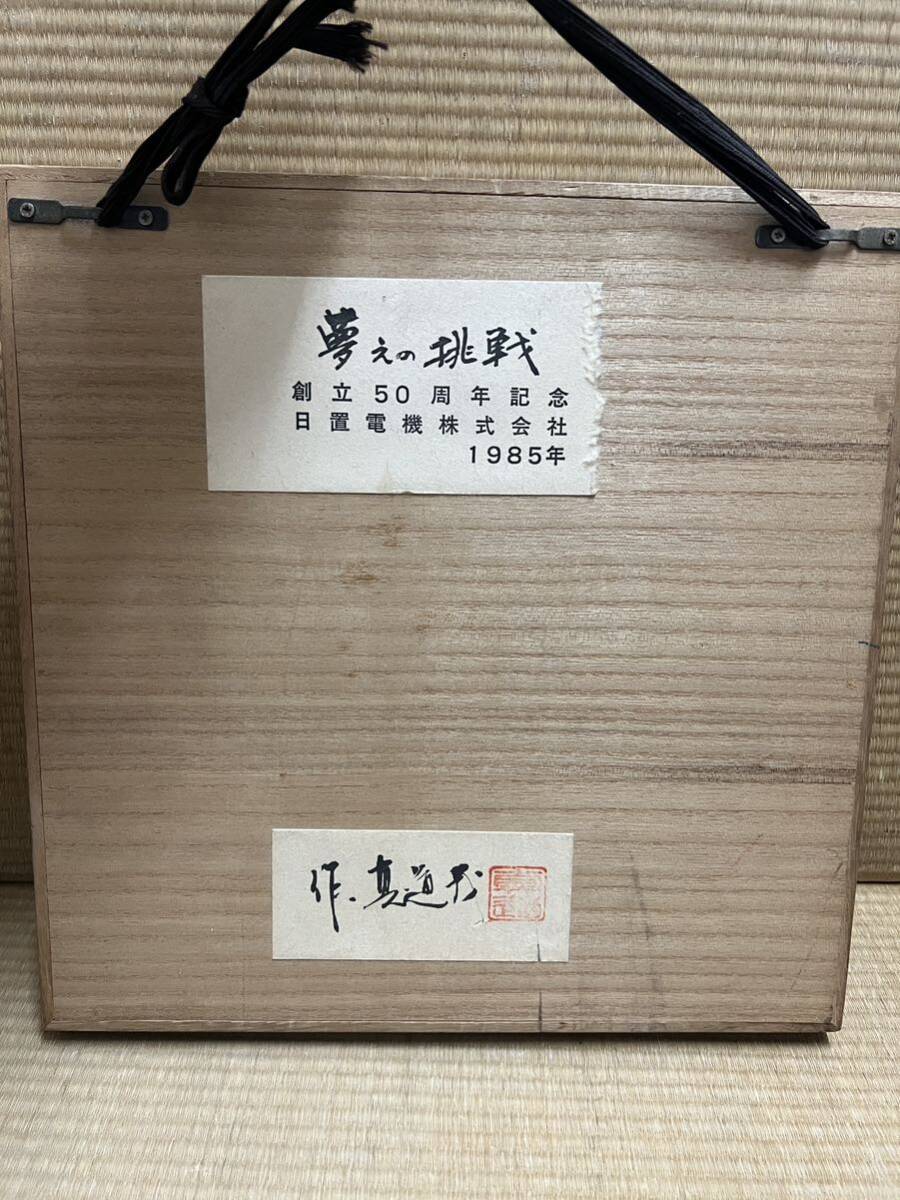 夢えの挑戦
創立50周年記念
日置電機株式会社
1985年
作.真道茂